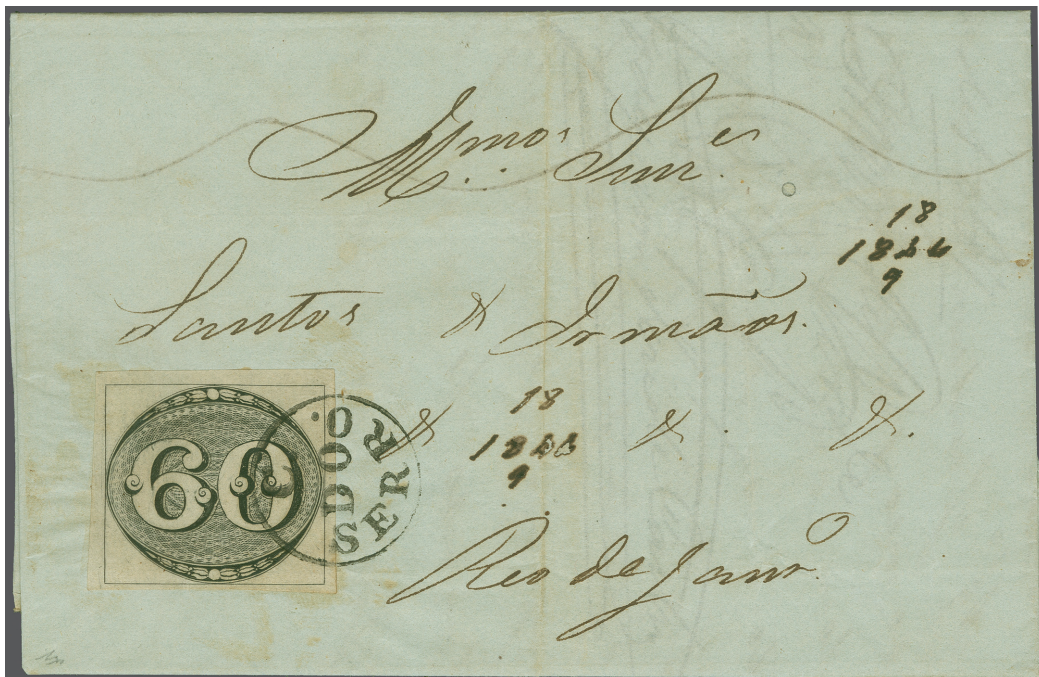 Illmos. Snres.
18
1844
9
Santos & Irmãos.
& & &.
18
1844
9
60
CO. DO SERRO
Rio de Janro.